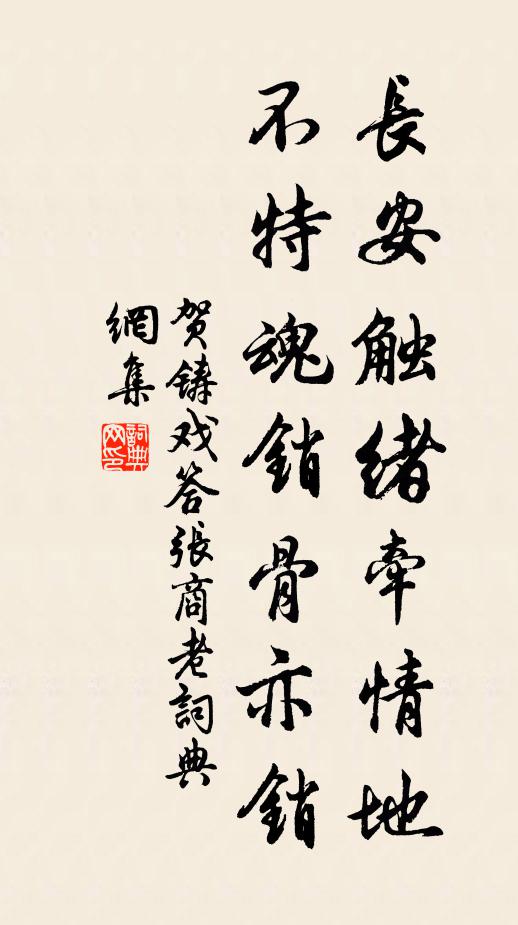 長安触緒牽情地
不特魂銷骨亦銷
贺鑄戏答張商老詞典
網集
詞典
网印